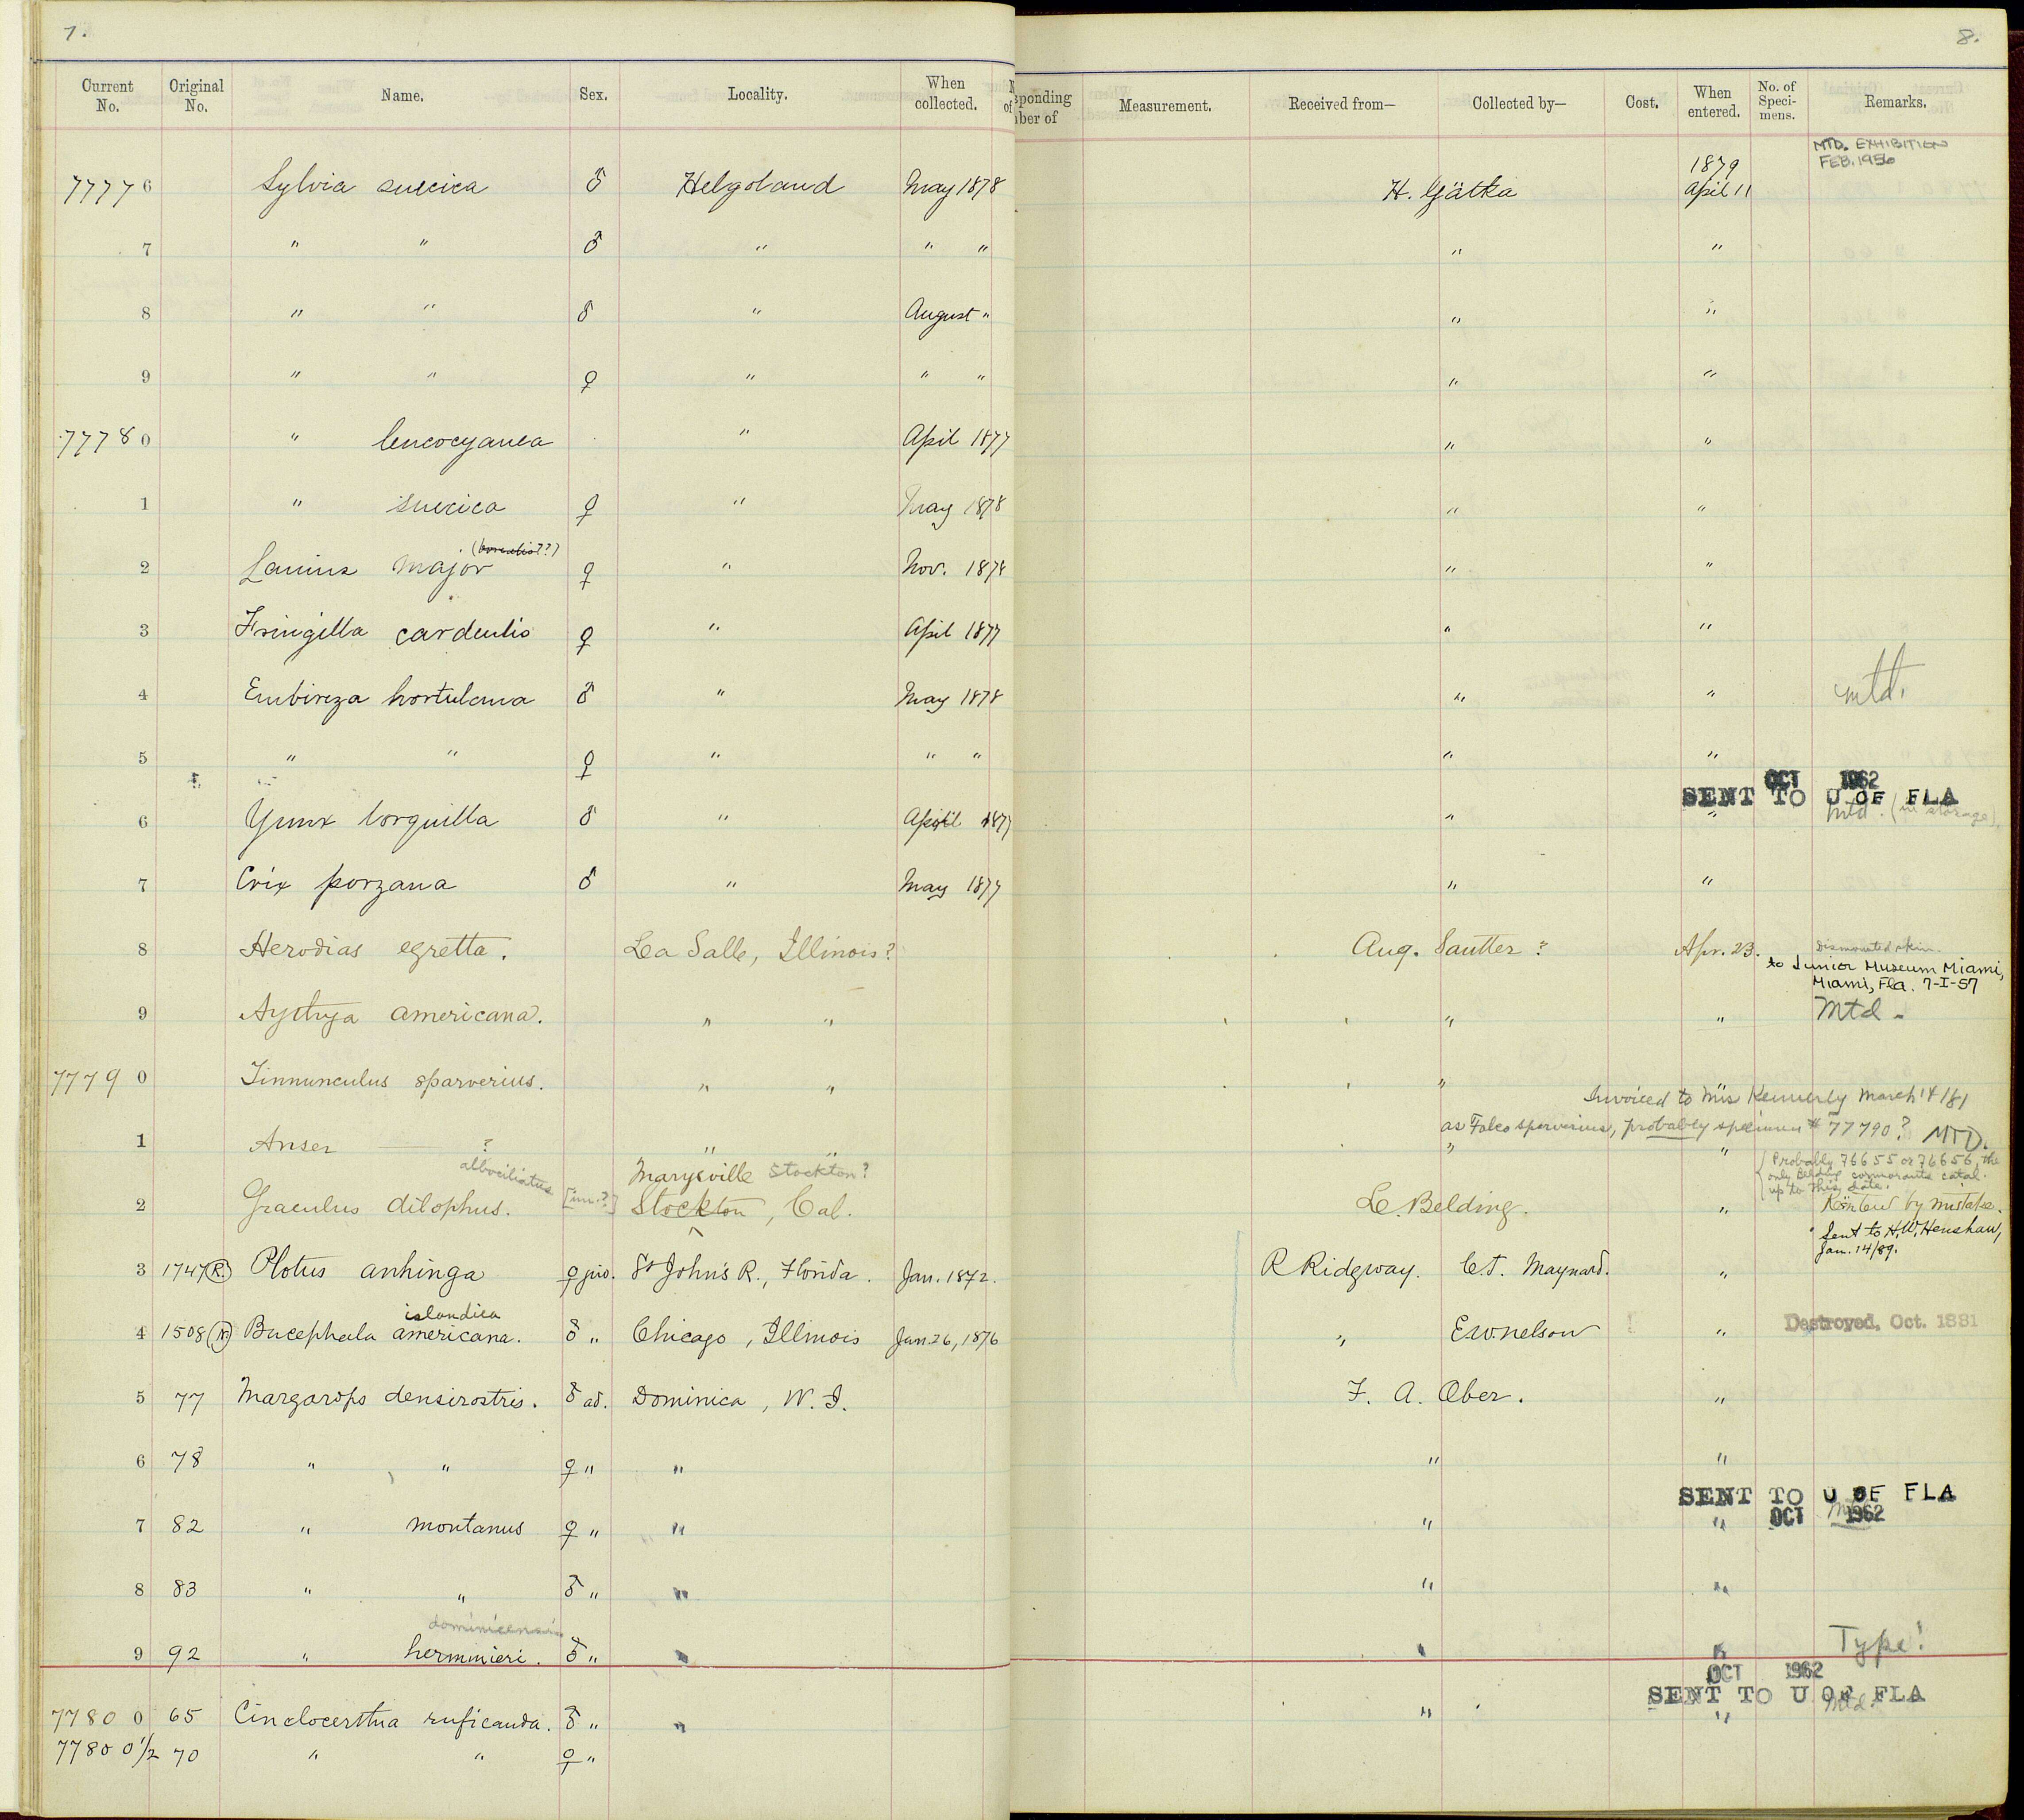 7.
8.
Current No. Original No. Name. Sex. Locality. When collected. sponding ber of Measurement. Received from— Collected by— Cost. When entered. No. of Speci- mens. Remarks.
MTD. EXHIBITION
FEB. 1956
1879
77776 Sylvia suecica ♂ Helgoland May 1878 H. Gätka April 11
7 " " ♂ " " " " "
8 " " ♂ " August " " "
9 " " ♀ " " " " "
77780 " leucocyanea " April 1877 " "
1 " suecica ♀ " May 1878 " "
(borealis??)
2 Lanius major ♀ " Nov. 1878 " "
3 Fringilla cardeulis ♀ " April 1877 " "
4 Embireza hortulana ♂ " May 1878 " " mtd.
5 " " ♀ " " " " "
OCT 1962
SENT TO U OF FLA
6 Yunx torquilla ♂ " April 1877 " " mtd. (in storage).
7 Crix porzana ♂ " May 1877 " "
8 Herodias egretta. La Salle, Illinois? Aug. Sautter? Apr. 23. Dismounted skin.
to Junior Museum Miami,
Miami, Fla. 7-I-57
9 Aythya americana. " " " " Mtd.
77790 Tinnunculus sparverius. " " " "
Invoiced to Mis Kennerly March 14/81
as Falco sparverius, probably specimen # 77790? MTD.
1 Anser —— ? " " " "
albociliatus Marysville Stockton?
{Probably 76655 or 76656, the
only Belding cormorants catal.
up to this date.
2 Graculus dilophus. [im.?] Stockton, Cal. L. Belding. " Reënterd by mistake.
Sent to H.W. Henshaw,
Jan. 14/89.
3 1747(R.) Plotus anhinga ♀ juv. St John's R., Florida. Jan. 1872. R Ridgway. C.J. Maynard. "
islandica
4 1508(N) Bucephala americana. ♂ " Chicago, Illinois Jan. 26, 1876 " E.W. Nelson " Destroyed, Oct. 1881
5 77 Margarops densirostris. ♂ ad. Dominica, W. I. F. A. Ober. "
6 78 " " ♀ " " " "
SENT TO U OF FLA
7 82 " montanus ♀ " " " " OCT 1962
8 83 " " ♂ " " " "
dominicensis
9 92 " herminieri. ♂ " " " " Type!
OCT 1962
SENT TO U OF FLA
77800 65 Cinclocerthia ruficauda. ♂ " " " " Mtd.
77800 1/2 70 " " ♀ "